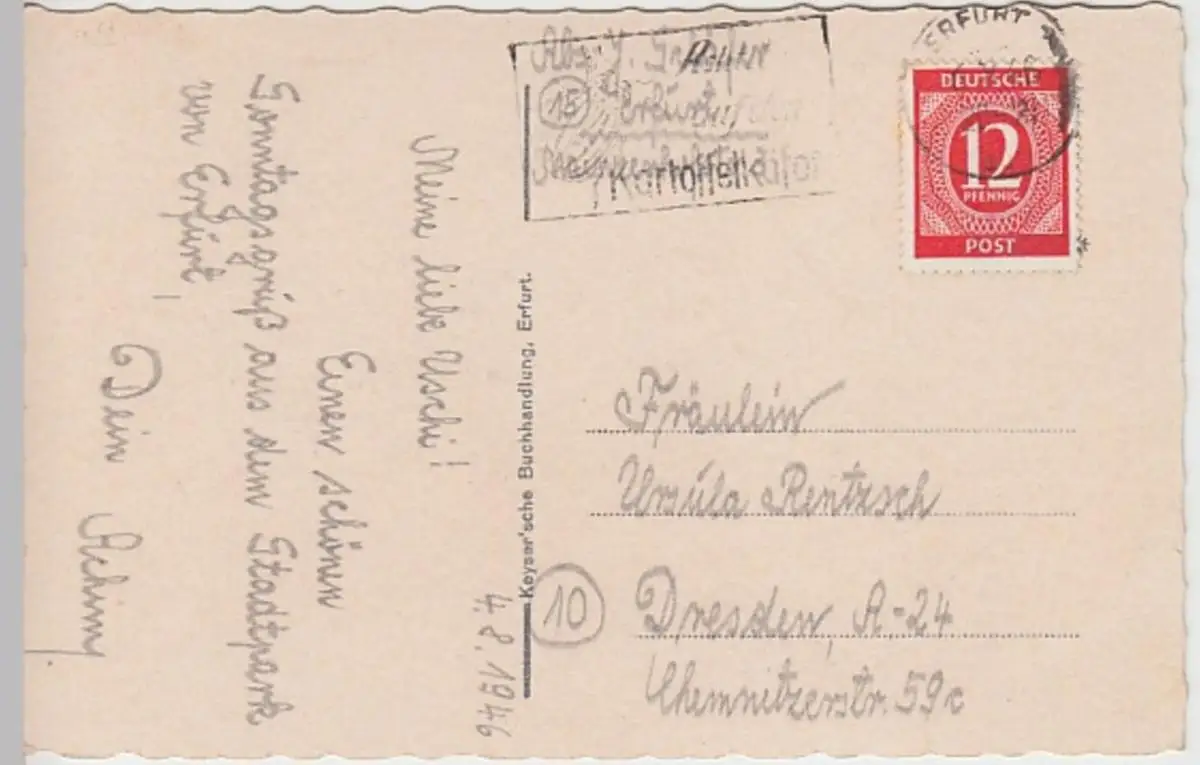 4. 8. 1946
Meine liebe Uschi!
Einen schönen
Sonntagsgruß aus dem Stadtpark
von Erfurt,
Dein Achim.
Keyser'sche Buchhandlung, Erfurt.
Abs.
15 Erfurt
Kartoffelkäfer
ERFURT
DEUTSCHE
12
PFENNIG
POST
Fräulein
Ursula Rentzsch
10 Dresden, A-24
Chemnitzerstr. 59c